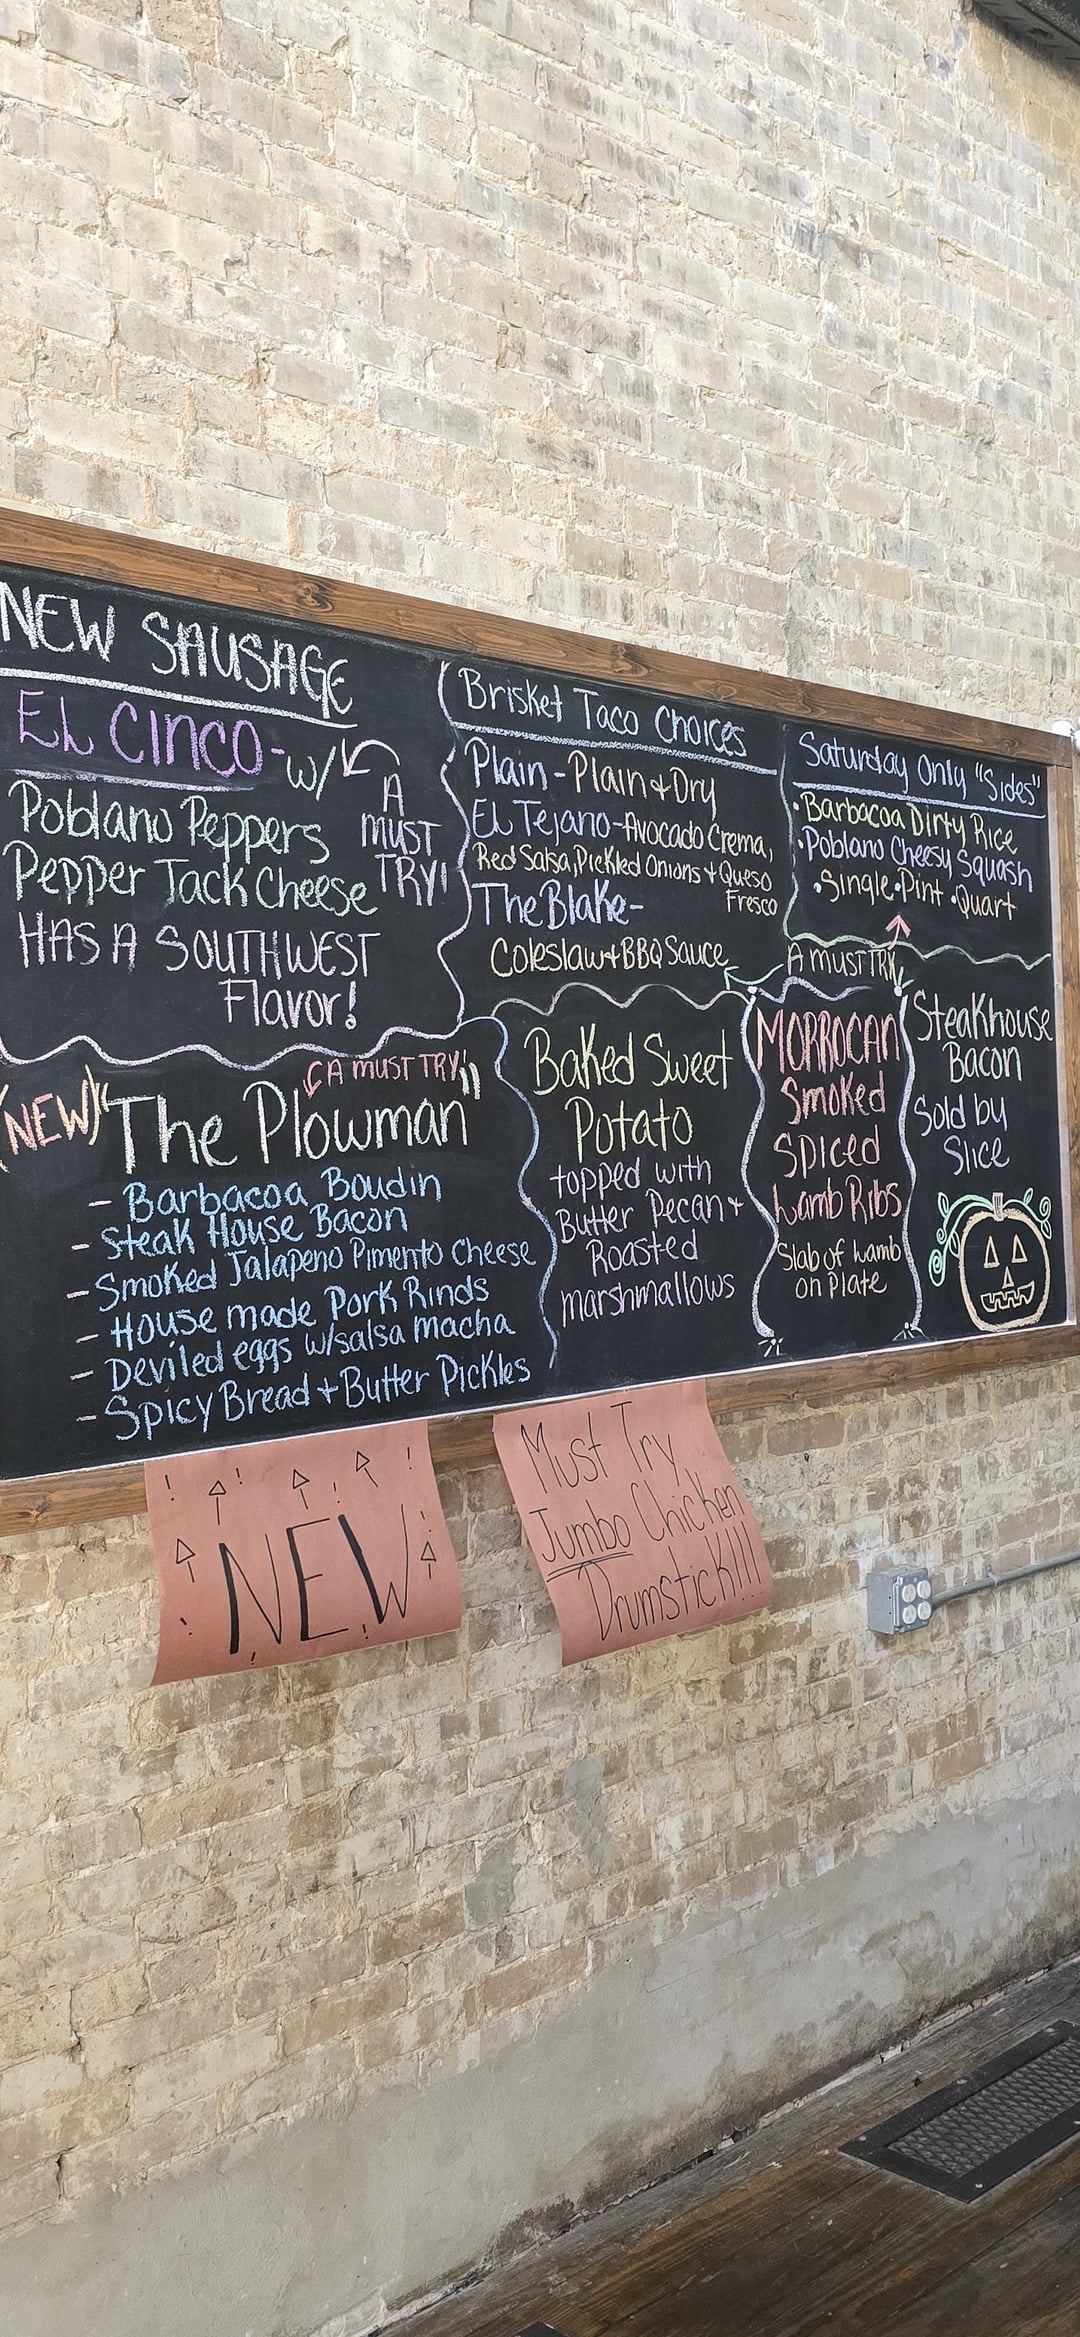 NEW SAUSAGE
EL CINCO - w/
Poblano Peppers
Pepper Jack Cheese
A
MUST
TRY!
HAS A SOUTHWEST
Flavor!
Brisket Taco Choices
Plain - Plain & Dry
El Tejano - Avocado Crema,
Red Salsa, Pickled Onions + Queso
Fresco
The Blake -
Coleslaw + BBQ Sauce
Saturday Only "Sides"
• Barbacoa Dirty Rice
• Poblano Cheesy Squash
• Single • Pint • Quart
A MUST TRY
A MUST TRY!
(NEW) "The Plowman"
- Barbacoa Boudin
- Steak House Bacon
- Smoked Jalapeno Pimento Cheese
- House made Pork Rinds
- Deviled eggs w/salsa macha
- Spicy Bread + Butter Pickles
Baked Sweet
Potato
topped with
Butter Pecan +
Roasted
marshmallows
MORROCAN
Smoked
Spiced
Lamb Ribs
Slab of Lamb
on Plate
Steakhouse
Bacon
Sold by
Slice
NEW
Must Try
Jumbo Chicken
Drumstick!!!